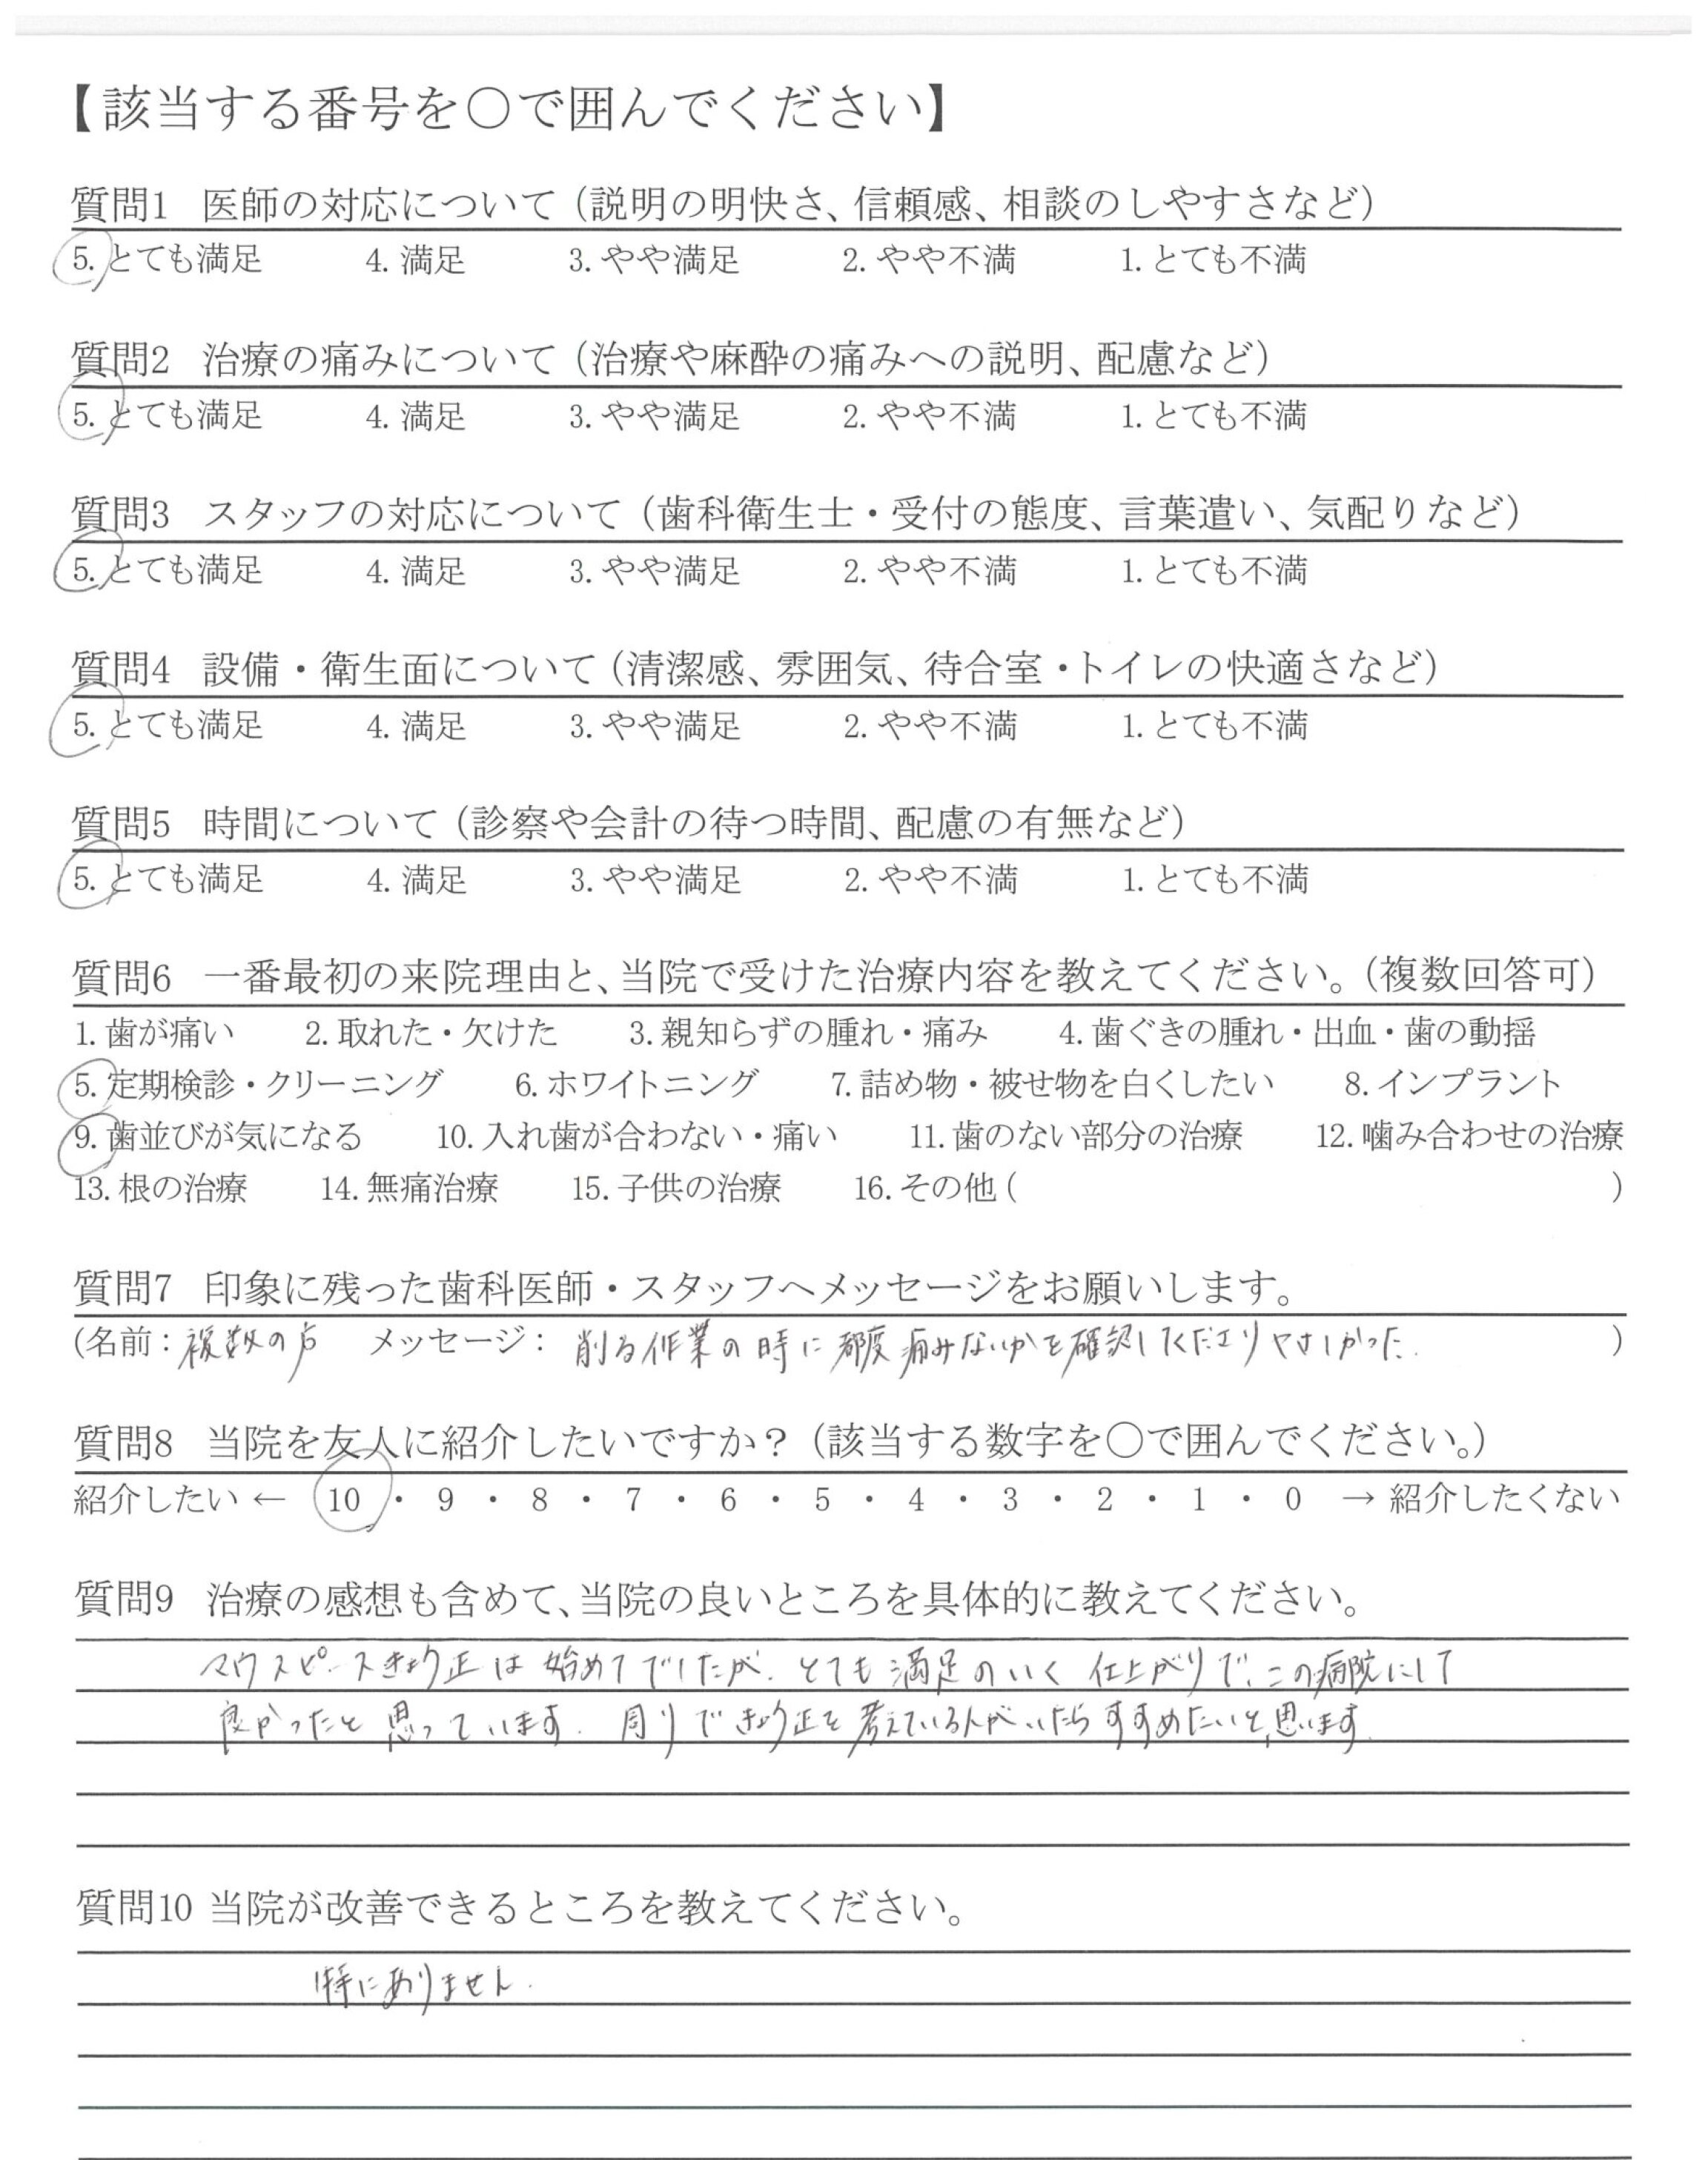 【該当する番号を○で囲んでください】
質問1 医師の対応について（説明の明快さ、信頼感、相談のしやすさなど）
5. とても満足 4. 満足 3. やや満足 2. やや不満 1. とても不満
質問2 治療の痛みについて（治療や麻酔の痛みへの説明、配慮など）
5. とても満足 4. 満足 3. やや満足 2. やや不満 1. とても不満
質問3 スタッフの対応について（歯科衛生士・受付の態度、言葉遣い、気配りなど）
5. とても満足 4. 満足 3. やや満足 2. やや不満 1. とても不満
質問4 設備・衛生面について（清潔感、雰囲気、待合室・トイレの快適さなど）
5. とても満足 4. 満足 3. やや満足 2. やや不満 1. とても不満
質問5 時間について（診察や会計の待つ時間、配慮の有無など）
5. とても満足 4. 満足 3. やや満足 2. やや不満 1. とても不満
質問6 一番最初の来院理由と、当院で受けた治療内容を教えてください。（複数回答可）
1. 歯が痛い 2. 取れた・欠けた 3. 親知らずの腫れ・痛み 4. 歯ぐきの腫れ・出血・歯の動揺
5. 定期検診・クリーニング 6. ホワイトニング 7. 詰め物・被せ物を白くしたい 8. インプラント
9. 歯並びが気になる 10. 入れ歯が合わない・痛い 11. 歯のない部分の治療 12. 噛み合わせの治療
13. 根の治療 14. 無痛治療 15. 子供の治療 16. その他（ ）
質問7 印象に残った歯科医師・スタッフへメッセージをお願いします。
（名前：複数の方 メッセージ：削る作業の時に都度痛みないかを確認してくださりやさしかった. ）
質問8 当院を友人に紹介したいですか？（該当する数字を○で囲んでください。）
紹介したい ← 10 ・ 9 ・ 8 ・ 7 ・ 6 ・ 5 ・ 4 ・ 3 ・ 2 ・ 1 ・ 0 → 紹介したくない
質問9 治療の感想も含めて、当院の良いところを具体的に教えてください。
マウスピースきょう正は始めてでしたが、とても満足のいく仕上がりで、この病院にして
良かったと思っています. 周りできょう正を考えている人がいたらすすめたいと思います.
質問10 当院が改善できるところを教えてください。
特にありません.